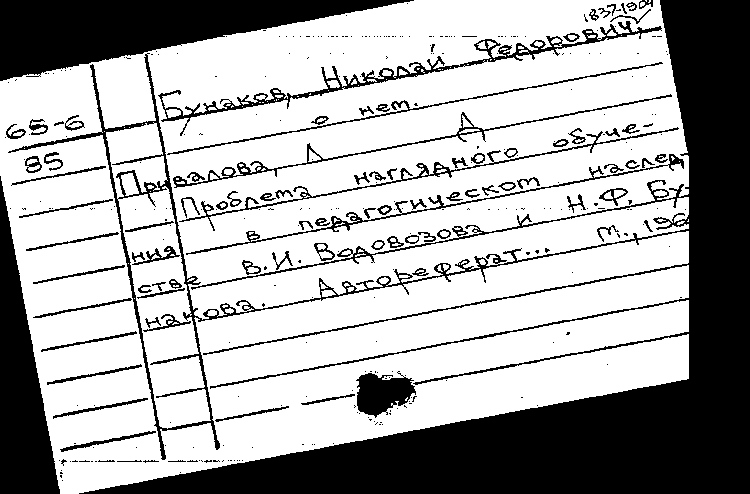 1837-1904
Бунаков, Николай Федорович,
о нем.
65-6
85
Привалова, Л Д
Проблема наглядного обуче-
ния в педагогическом наслед-
стве В.И. Водовозова и Н.Ф. Бу-
накова. Автореферат... М., 196